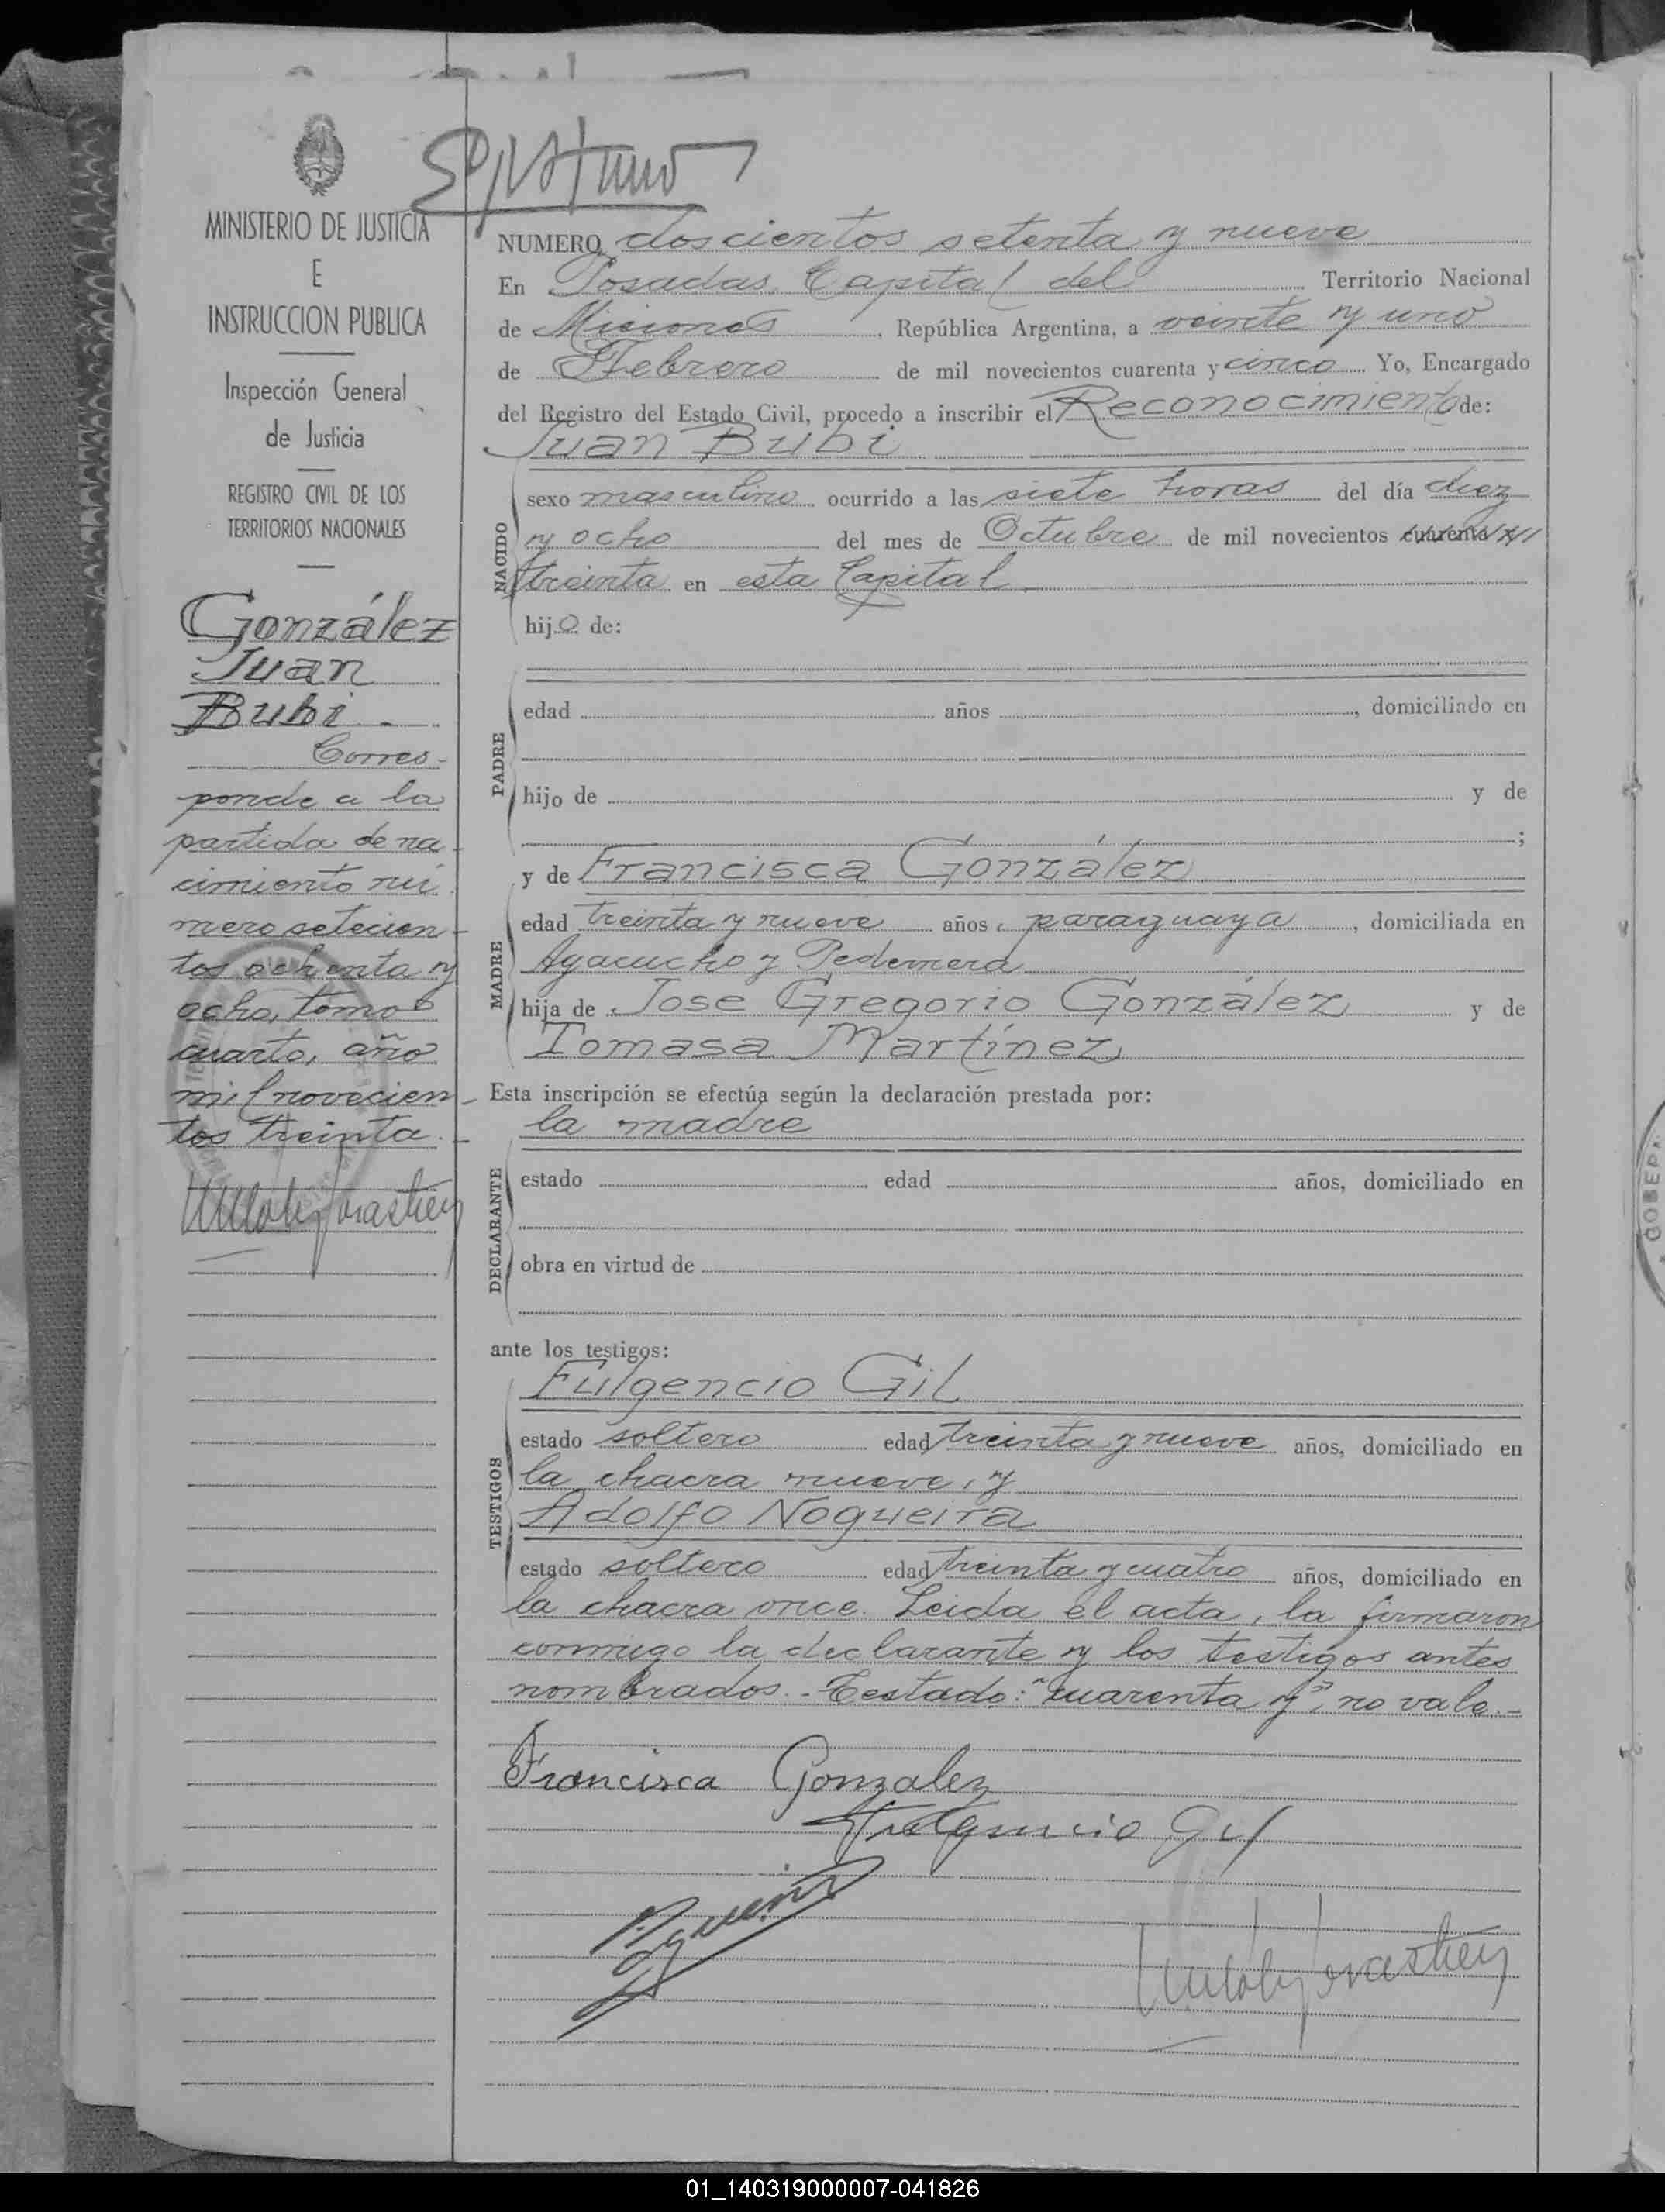 MINISTERIO DE JUSTICIA
E
INSTRUCCION PUBLICA
Inspección General
de Justicia
REGISTRO CIVIL DE LOS
TERRITORIOS NACIONALES
González
Juan
Bubi.-
Corres-
ponde a la
partida de na-
cimiento nú-
mero setecien-
tos ochenta y
ocho, tomo
cuarto, año
mil novecien-
tos treinta.-
NUMERO doscientos setenta y nueve
En Posadas, Capital del Territorio Nacional
de Misiones, República Argentina, a veinte y uno
de Febrero de mil novecientos cuarenta y cinco Yo, Encargado
del Registro del Estado Civil, procedo a inscribir el Reconocimiento de:
Juan Bubi
NACIDO
sexo masculino ocurrido a las siete horas del día diez
y ocho del mes de Octubre de mil novecientos cuarenta y
treinta en esta Capital
hijo de:
PADRE
edad años , domiciliado en
hijo de y de
;
y de Francisca González
MADRE
edad treinta y nueve años, paraguaya, domiciliada en
Ayacucho y Pedernera
hija de Jose Gregorio González y de
Tomasa Martínez
Esta inscripción se efectúa según la declaración prestada por:
la madre
DECLARANTE
estado edad años, domiciliado en
obra en virtud de
ante los testigos:
Fulgencio Gil
TESTIGOS
estado soltero edad treinta y nueve años, domiciliado en
la chacra nueve, y
Adolfo Nogueira
estado soltero edad treinta y cuatro años, domiciliado en
la chacra once. Leida el acta, la firmaron
conmigo la declarante y los testigos antes
nombrados.- Testado: "cuarenta y" no vale.-
Francisca Gonzalez
Fulgencio Gil
GOBER
01_140319000007-041826